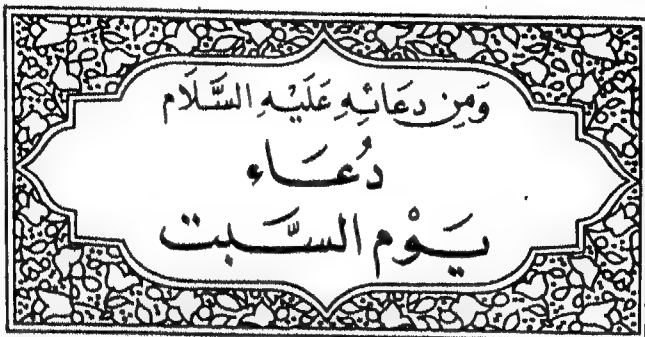 وَمِن دعَائِهِ عَلَيْهِ السَّلَام
دُعَــاء
يَــوْم السَّــبت